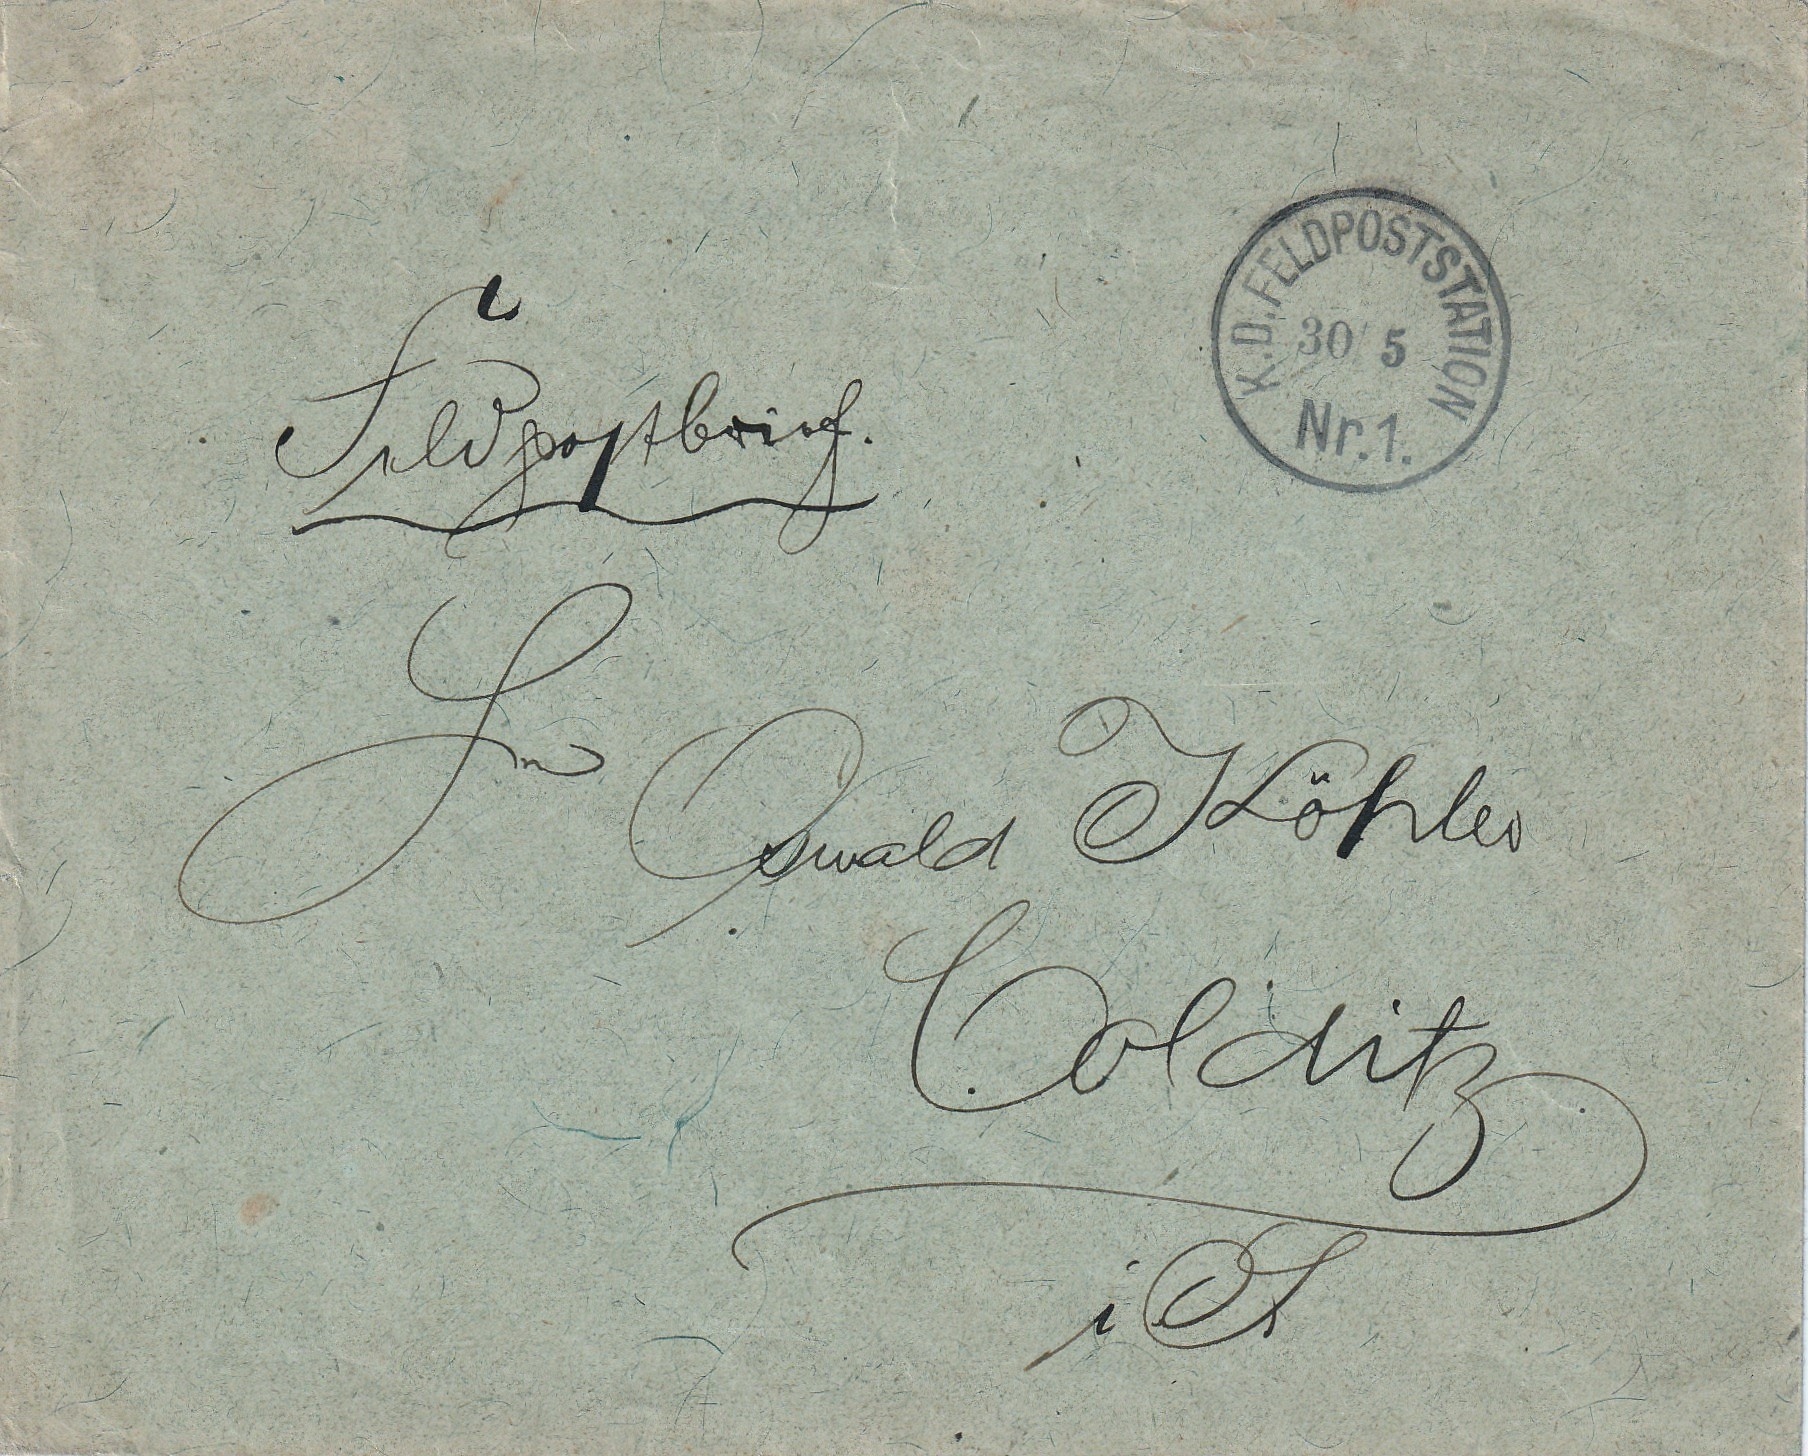 K.D.FELDPOSTSTATION
30 5
Nr.1.
Feldpostbrief.
Oswald Köhler
Colditz
i S